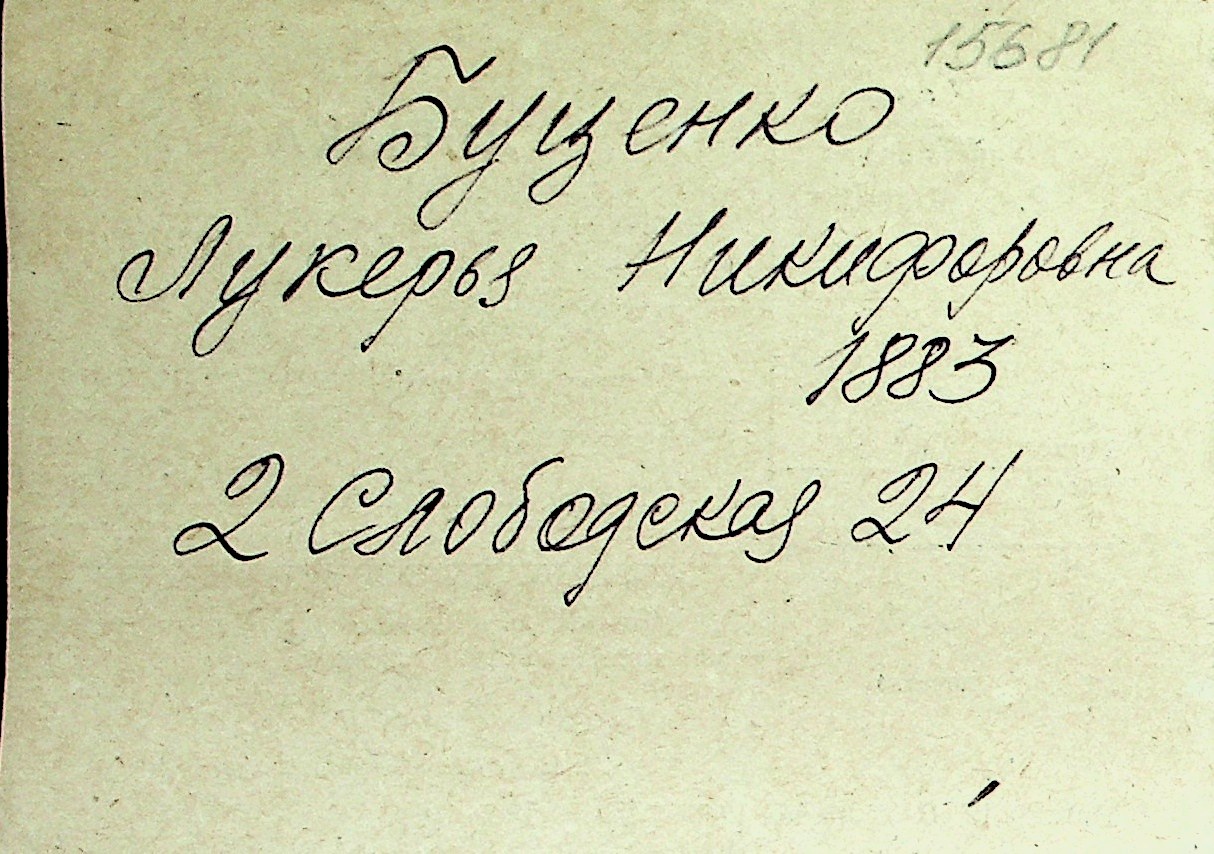 15681
Буценко
Лукерья Никифоровна
1883
2 Слободская 24